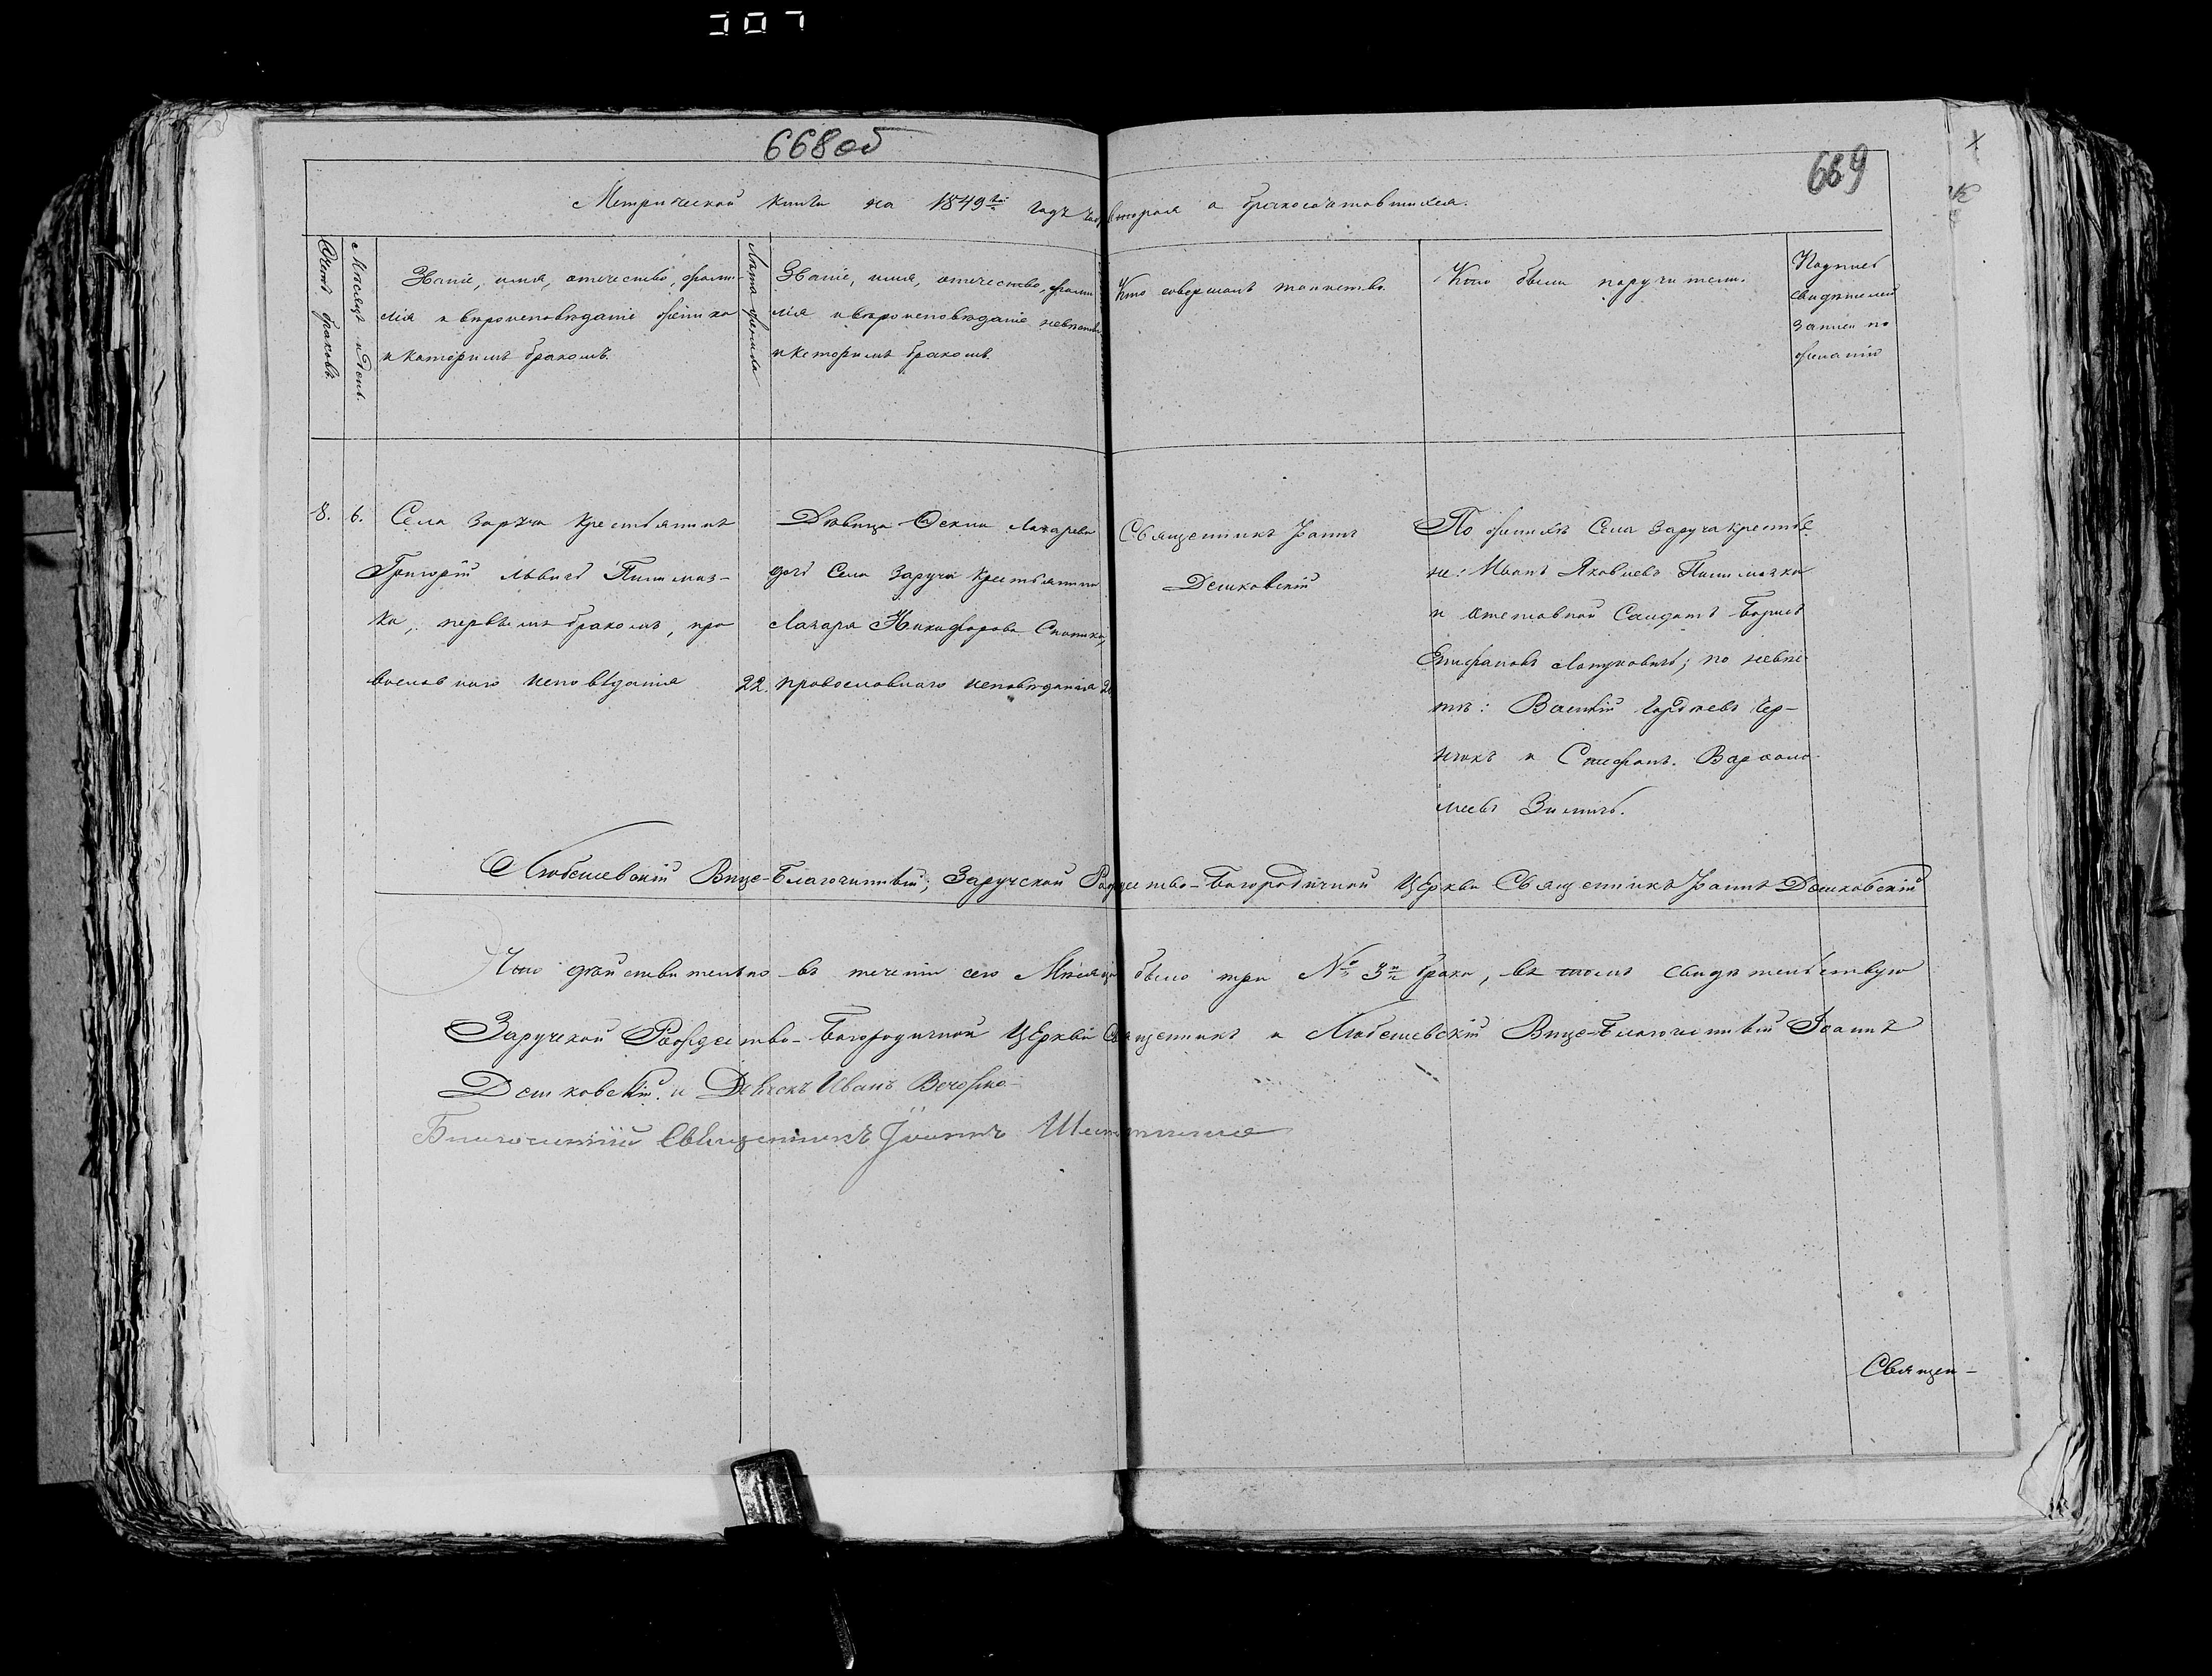 668об
669
Метрической книги на 1849й годъ часть вторая о бракосочетавшихся.
Счетъ браковъ.
Мѣсяцъ и день.
Званіе, имя, отечество, фами-
лія и вѣроисповѣданіе жениха
и каторимъ бракомъ.
Лѣта жениха
Званіе, имя, отечество, фами
лія и вѣроисповѣданіе невѣсты
и которимъ бракомъ.
Кто совершалъ таинство.
Кто были поручители.
Подпись
свидѣтелей
записи по
желанію
8. 6. Села Заръча крестьянинъ
Григорій Львичъ
первымъ бракомъ, пра
вославнаго исповѣданія 22.
Дѣвица Лазарева
дочь Села Заручя крестьянина
Лазаря Никифорова
православнаго исповѣданія
Священникъ Іоаннъ
Дешковскій
По женихѣ Села Заруча крестья
не: Иванъ Яковлевъ
и отставной Салдатъ Борисъ
по невѣс
тѣ: Василій Гордѣевъ Чер-
някъ и Стефанъ Варѳоло-
меевъ Зиничъ.
Любешевскій Вице-Благочинный, Заручской Рождество-Богородичной Церкви Священникъ Іоаннъ Дешковскій
Что дѣйствительно въ теченіи сего Мѣсяца было три № 3и брака, въ томъ свидѣтельствую
Заручской Рождество-Богородичной Церкви Священникъ и Любешевскій Вице-Благочинный Іоаннъ
Дешковскій. и Дьячекъ Иванъ
Благочинный Священникъ Іоаннъ
Священ-